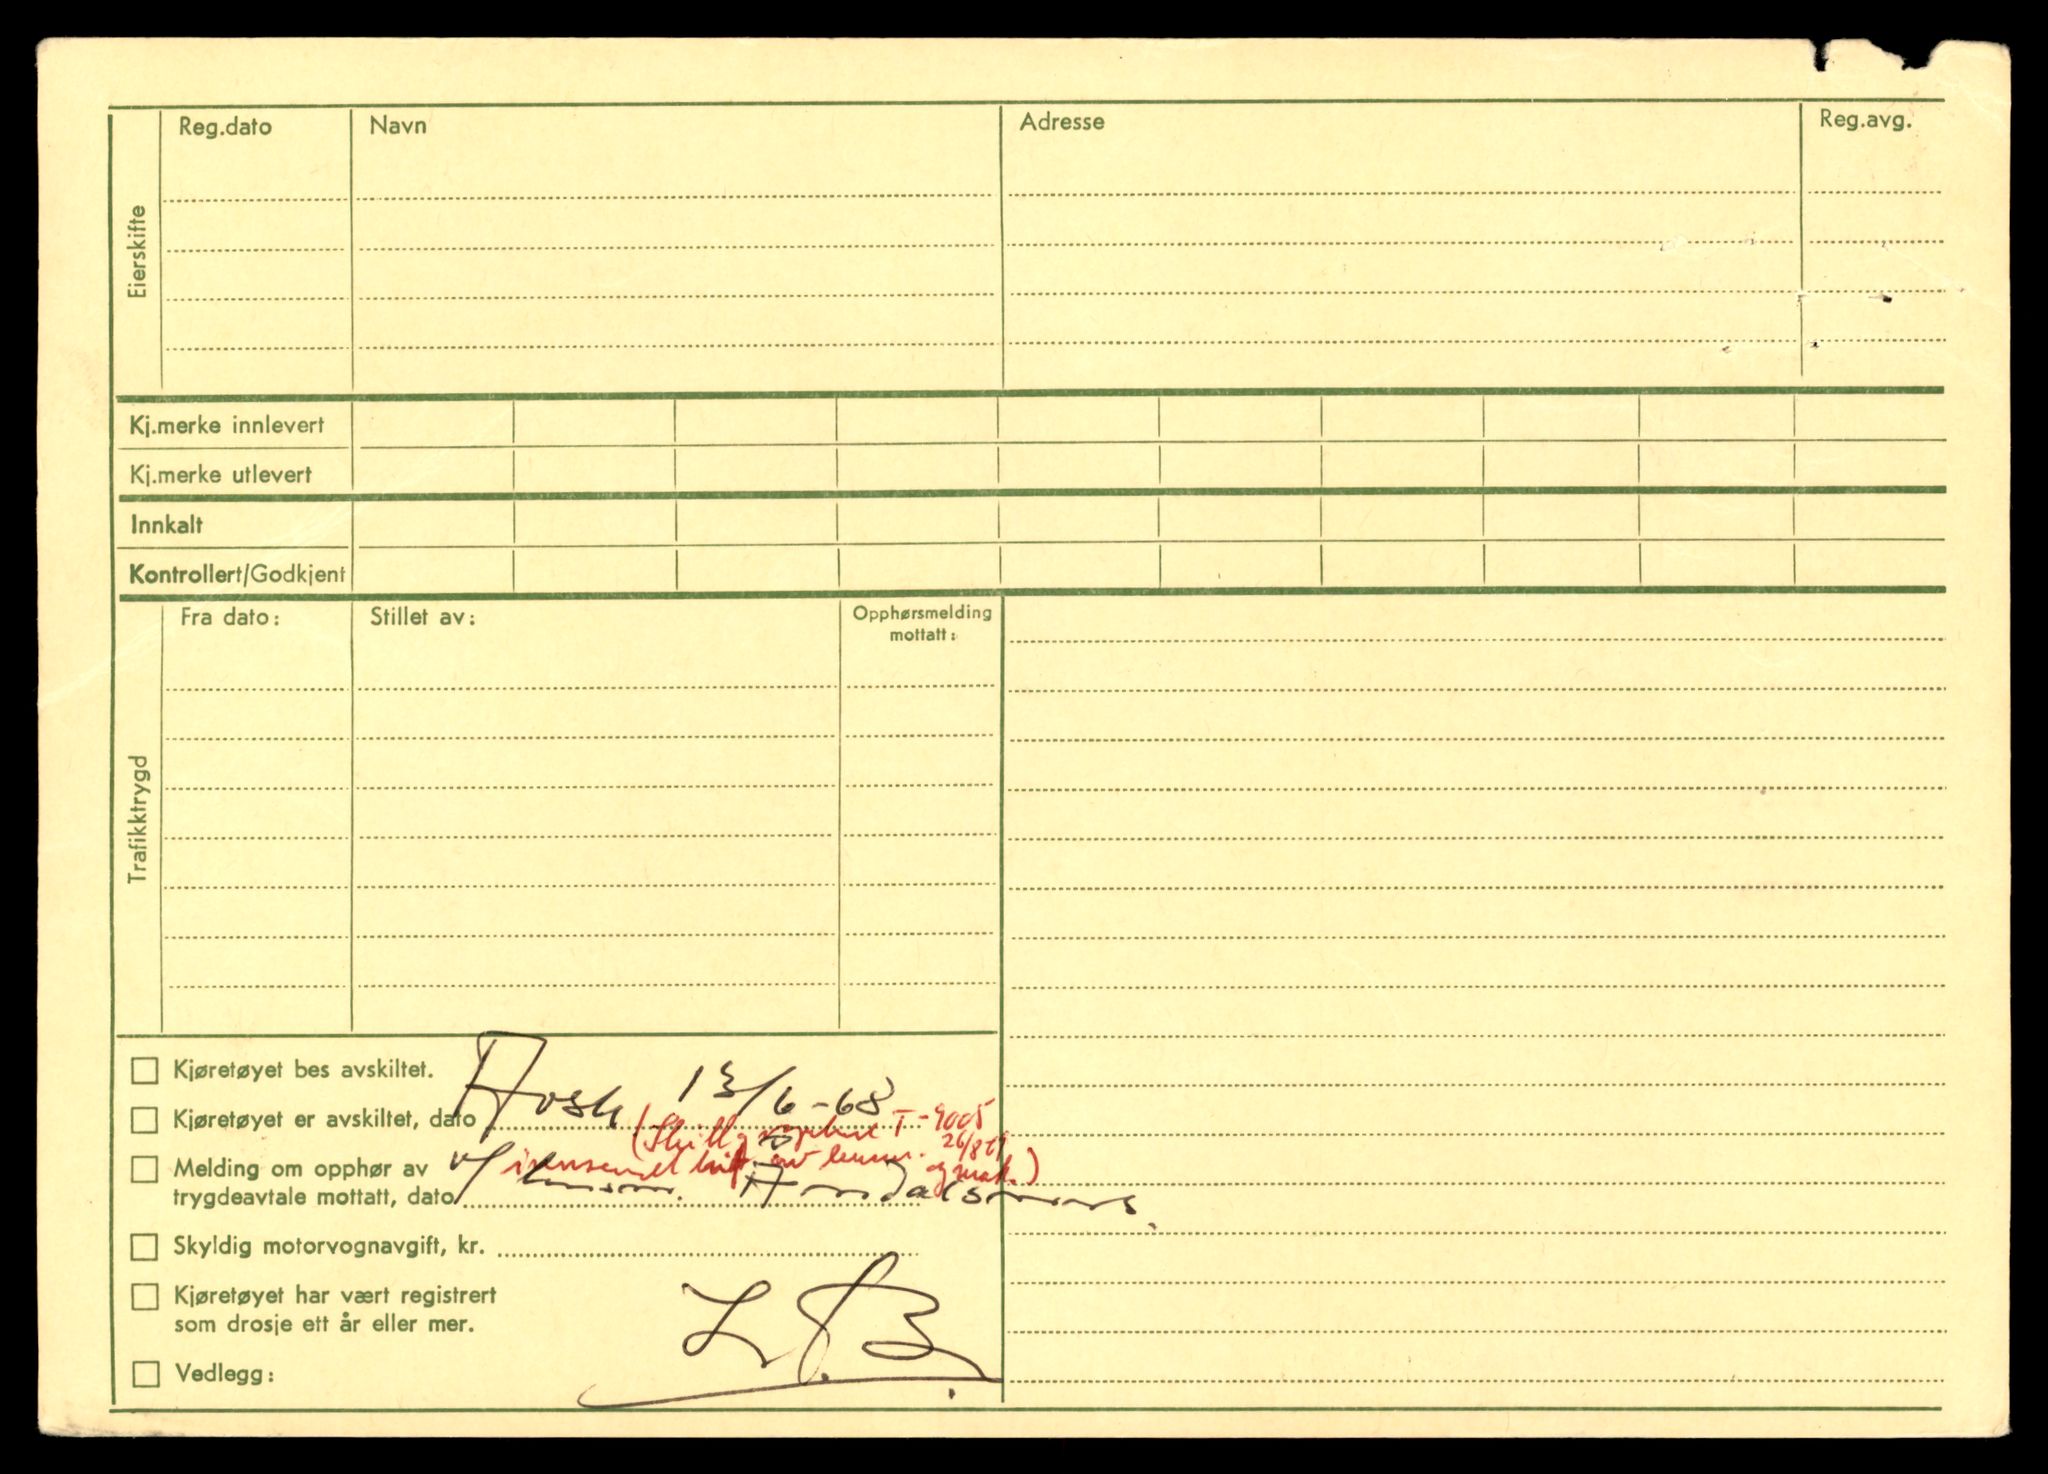 Eierskifte
Reg.dato
Navn
Adresse
Reg.avg.
Kj.merke innlevert
Kj.merke utlevert
Innkalt
Kontrollert/Godkjent
Trafikktrygd
Fra dato:
Stillet av:
Opphørsmelding
mottatt:
Kjøretøyet bes avskiltet.
Avsk 13/6-68
Kjøretøyet er avskiltet, dato
T-9005
26/8 69
Melding om opphør av
innsendt av lensm.
trygdeavtale mottatt, dato
lensm. Åndalsnes.
Skyldig motorvognavgift, kr.
Kjøretøyet har vært registrert
som drosje ett år eller mer.
Vedlegg: